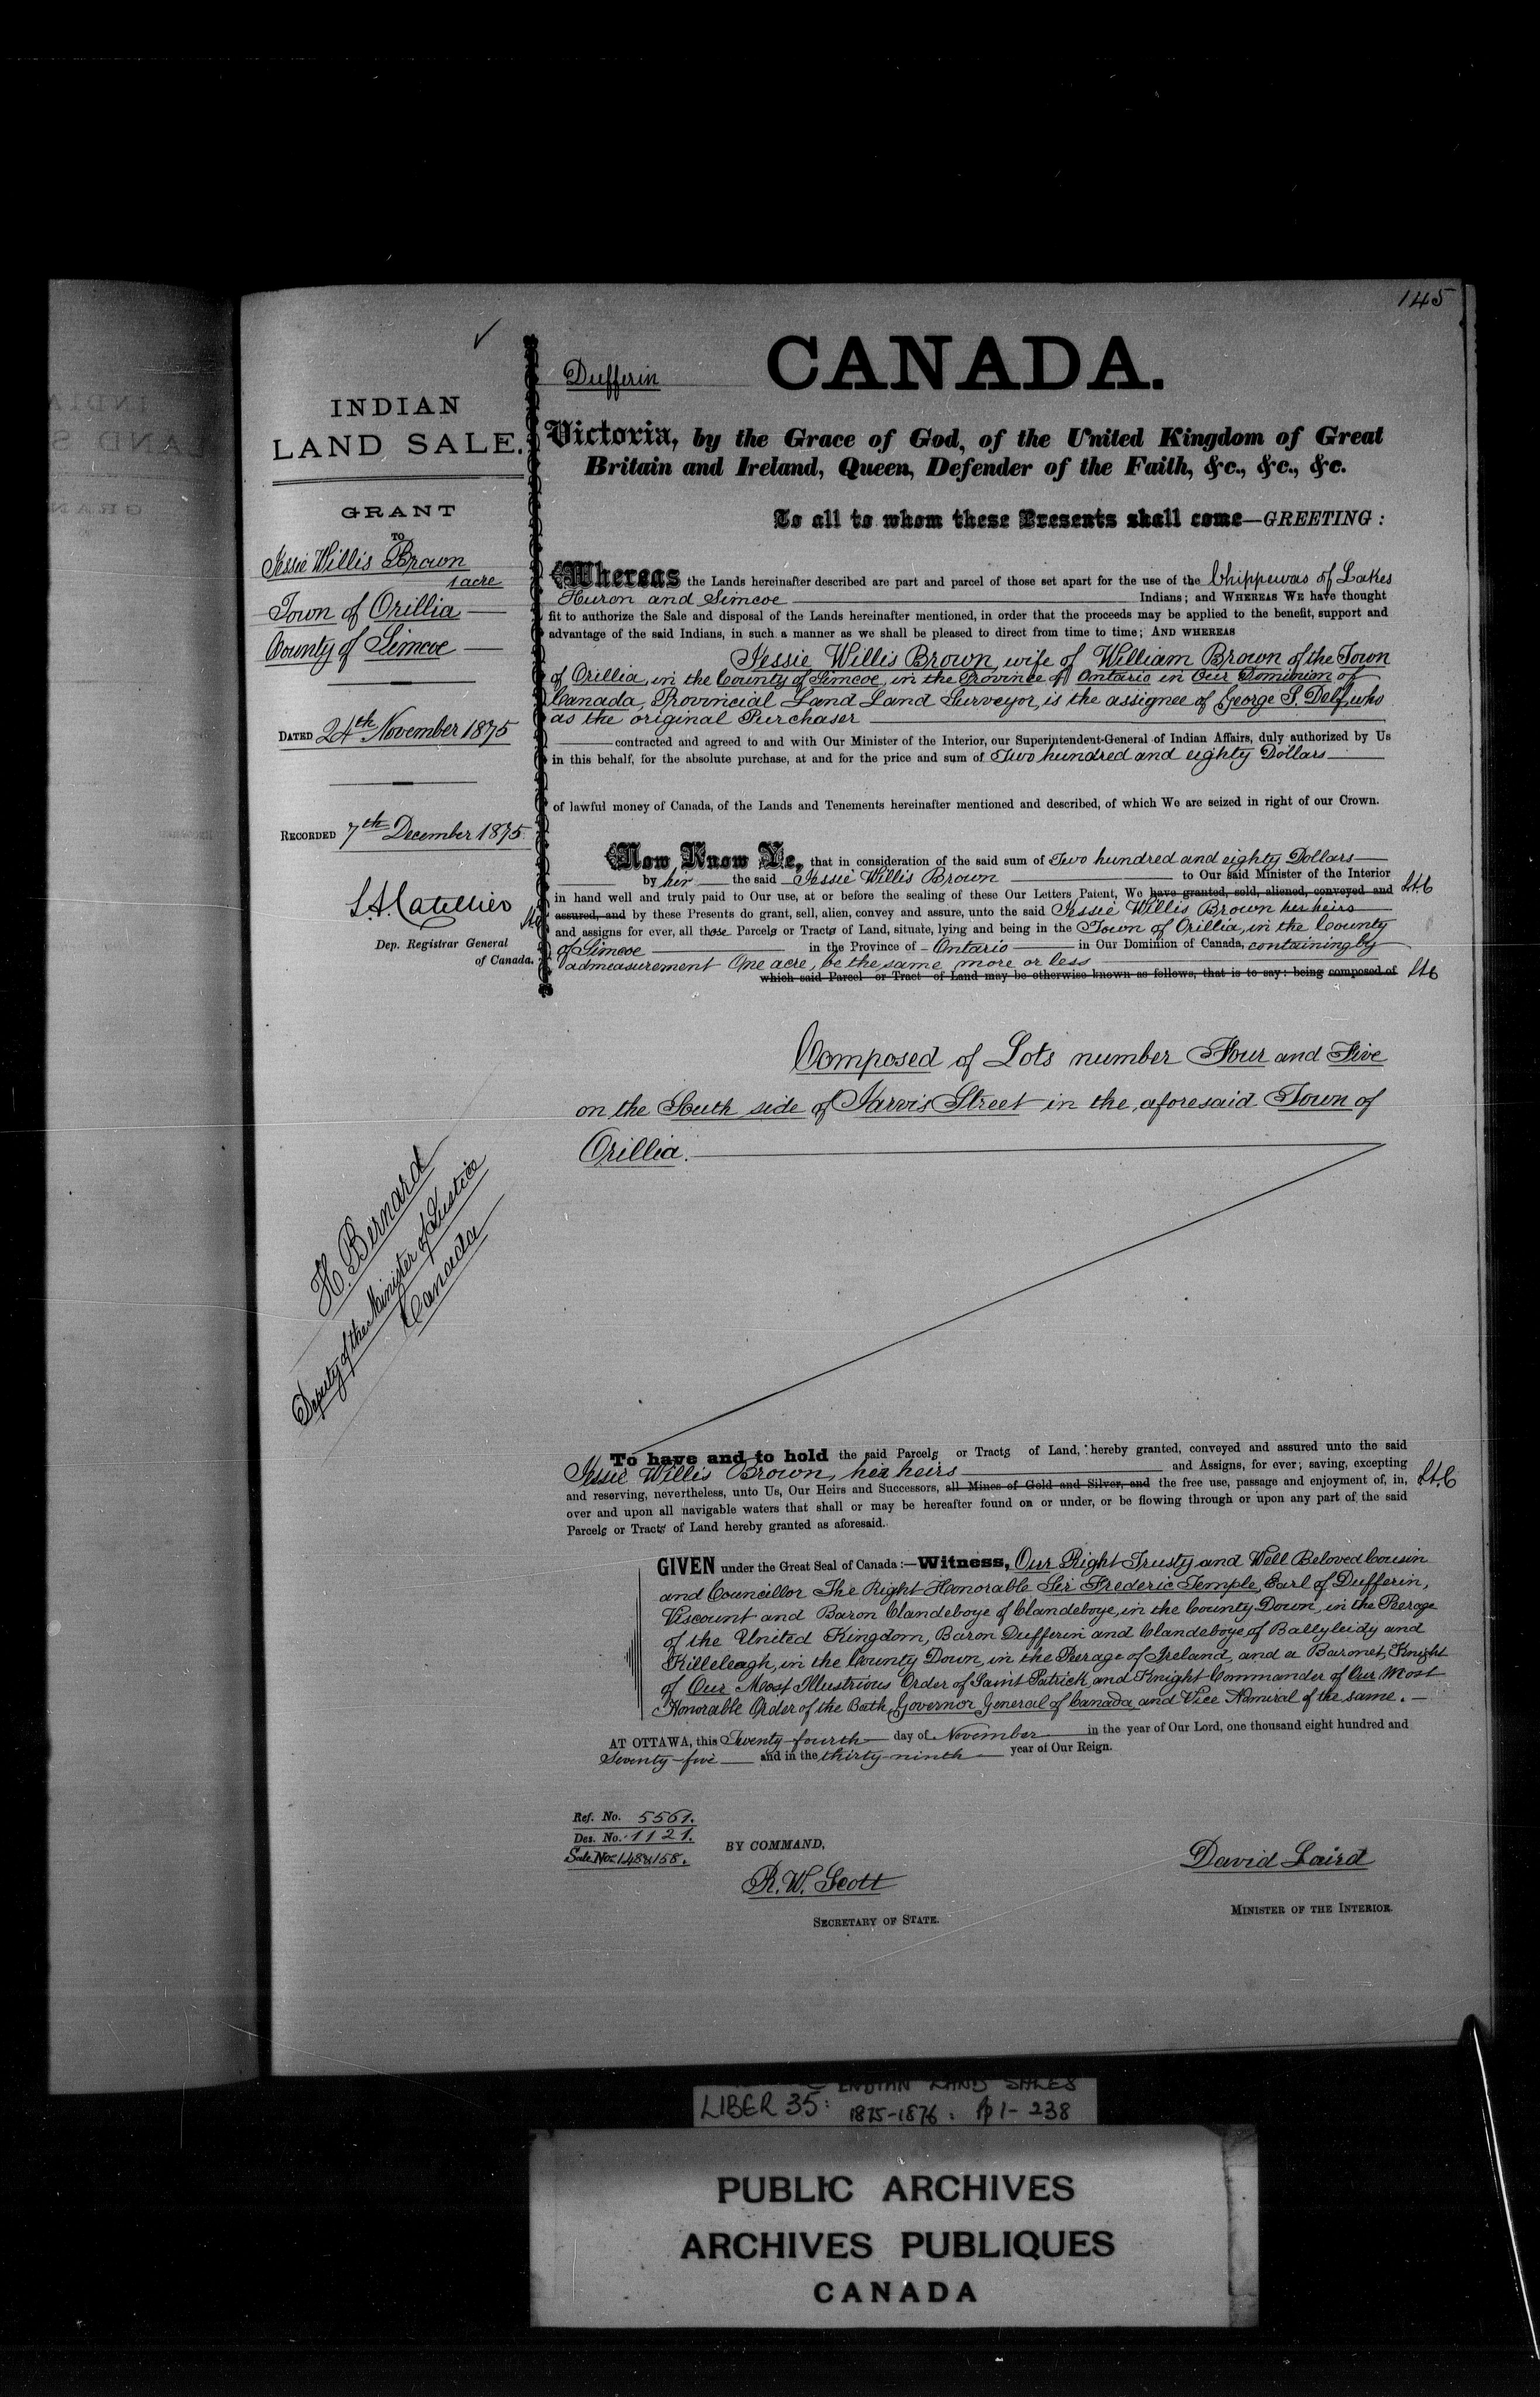 145
CANADA.
Dufferin
INDIAN
LAND SALE.
GRANT
TO
Jessie Willis Brown
1 acre
Town of Orillia
County of Simcoe
DATED 24th November 1875
RECORDED 7th December 1875
L.A. Catellier
Dep. Registrar General
of Canada.
H. Bernard
Deputy of the Minister of Justice
Canada
Victoria, by the Grace of God, of the United Kingdom of Great
Britain and Ireland, Queen, Defender of the Faith, &c., &c., &c.
To all to whom these Presents shall come—GREETING:
Whereas the Lands hereinafter described are part and parcel of those set apart for the use of the Chippewas of Lakes
Huron and Simcoe Indians; and WHEREAS WE have thought
fit to authorize the Sale and disposal of the Lands hereinafter mentioned, in order that the proceeds may be applied to the benefit, support and
advantage of the said Indians, in such a manner as we shall be pleased to direct from time to time; AND WHEREAS
Jessie Willis Brown, wife of William Brown of the Town
of Orillia, in the County of Simcoe, in the Province of Ontario in Our Dominion of
Canada, Provincial Land Land Surveyor, is the assignee of George S. Delf, who
as the original Purchaser
contracted and agreed to and with Our Minister of the Interior, our Superintendent-General of Indian Affairs, duly authorized by Us
in this behalf, for the absolute purchase, at and for the price and sum of Two hundred and eighty Dollars
of lawful money of Canada, of the Lands and Tenements hereinafter mentioned and described, of which We are seized in right of our Crown.
Now Know Ye, that in consideration of the said sum of Two hundred and eighty Dollars
by her the said Jessie Willis Brown to Our said Minister of the Interior
in hand well and truly paid to Our use, at or before the sealing of these Our Letters Patent, We have granted, sold, aliened, conveyed and LAC
assured, and by these Presents do grant, sell, alien, convey and assure, unto the said Jessie Willis Brown her heirs
and assigns for ever, all those Parcels or Tracts of Land, situate, lying and being in the Town of Orillia, in the County
of Simcoe in the Province of Ontario in Our Dominion of Canada, containing by
admeasurement One acre, be the same more or less
which said Parcel or Tract of Land may be otherwise known as follows, that is to say: being composed of LAC
Composed of Lots number Four and Five
on the South side of Jarvis Street in the aforesaid Town of
Orillia.
To have and to hold the said Parcels or Tracts of Land, hereby granted, conveyed and assured unto the said
Jessie Willis Brown, her heirs and Assigns, for ever; saving, excepting
and reserving, nevertheless, unto Us, Our Heirs and Successors, all Mines of Gold and Silver, and the free use, passage and enjoyment of, in, LAC
over and upon all navigable waters that shall or may be hereafter found on or under, or be flowing through or upon any part of the said
Parcels or Tracts of Land hereby granted as aforesaid.
GIVEN under the Great Seal of Canada:—Witness, Our Right Trusty and Well Beloved Cousin
and Councillor The Right Honorable Sir Frederic Temple, Earl of Dufferin,
Viscount and Baron Clandeboye of Clandeboye, in the County Down, in the Peerage
of the United Kingdom, Baron Dufferin and Clandeboye of Ballyleidy and
Killeleagh, in the County Down, in the Peerage of Ireland, and a Baronet, Knight
of Our Most Illustrious Order of Saint Patrick, and Knight Commander of Our Most
Honorable Order of the Bath, Governor General of Canada and Vice Admiral of the same.
AT OTTAWA, this Twenty-fourth day of November in the year of Our Lord, one thousand eight hundred and
Seventy-five and in the thirty-ninth year of Our Reign.
Ref. No. 5561.
Des. No. 1121.
Sale Nos 148 & 158.
BY COMMAND,
R. W. Scott
SECRETARY OF STATE.
David Laird
MINISTER OF THE INTERIOR.
INDIAN LAND SALES
LIBER 35: 1875-1876. pp 1-238
PUBLIC ARCHIVES
ARCHIVES PUBLIQUES
CANADA